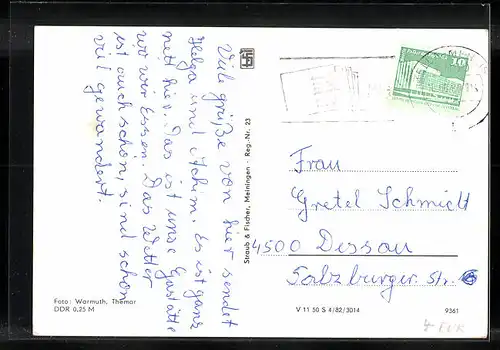 Viele grüße von hier sendet
Helga und Achim. Es ist ganz
nett hier. Das ist unse Gaststätte
wo wir Essen. Das Wetter
ist auch schön, sind schon
viel gewandert.
Foto: Warmuth, Themar
DDR 0,25 M
Straub & Fischer, Meiningen · Reg.-Nr. 23
10
Frau
Gretel Schmidt
4500 Dessau
Salzburger Str. 6
V 11 50 S 4/82/3014
9361
4 EUR